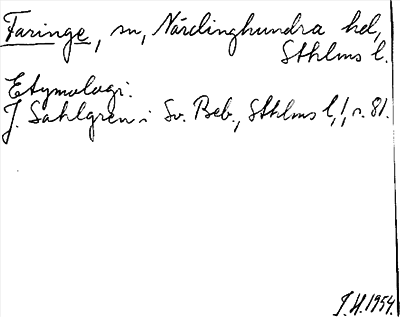 Faringe, sn, Närdinghundra hd,
Sthlms l.
Etymologi.
J. Sahlgren i Sv. Beb., Sthlms l, 1, s. 81.
J.H. 1954.